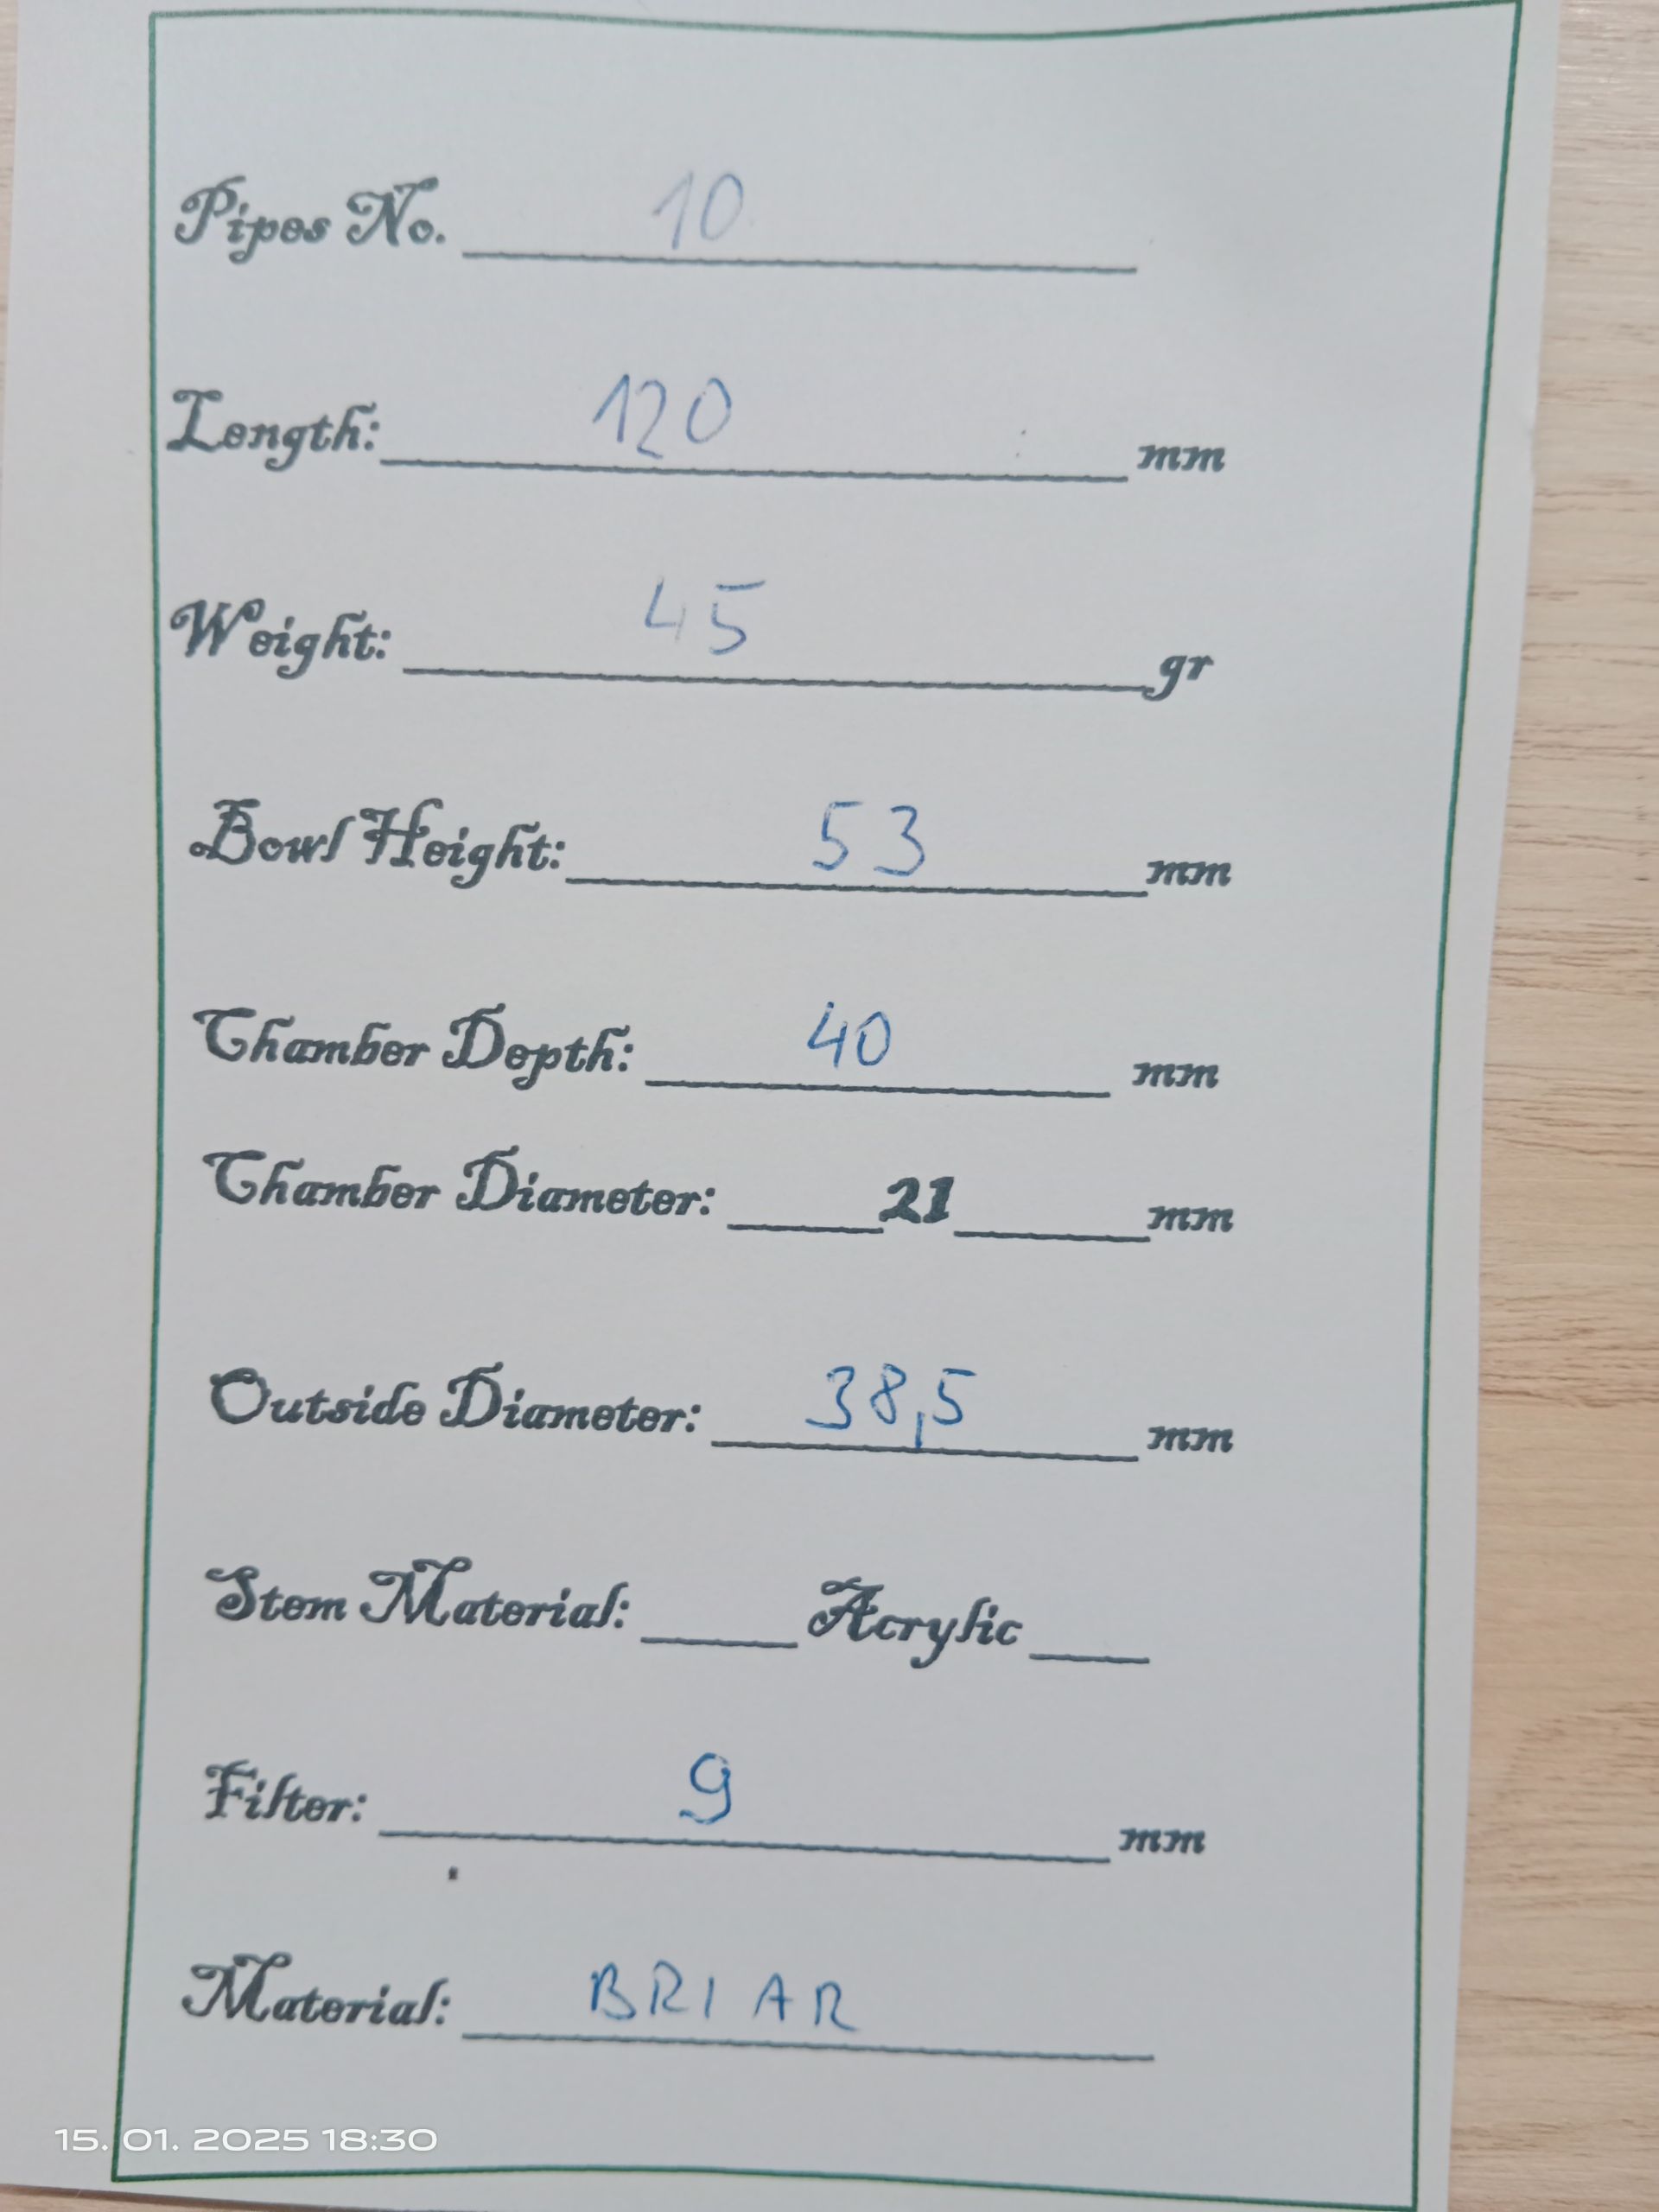 Pipes No. 10
Length: 120 mm
Weight: 45 gr
Bowl Height: 53 mm
Chamber Depth: 40 mm
Chamber Diameter: 21 mm
Outside Diameter: 38,5 mm
Stem Material: Acrylic
Filter: 9 mm
Material: BRIAR
15. 01. 2025 18:30